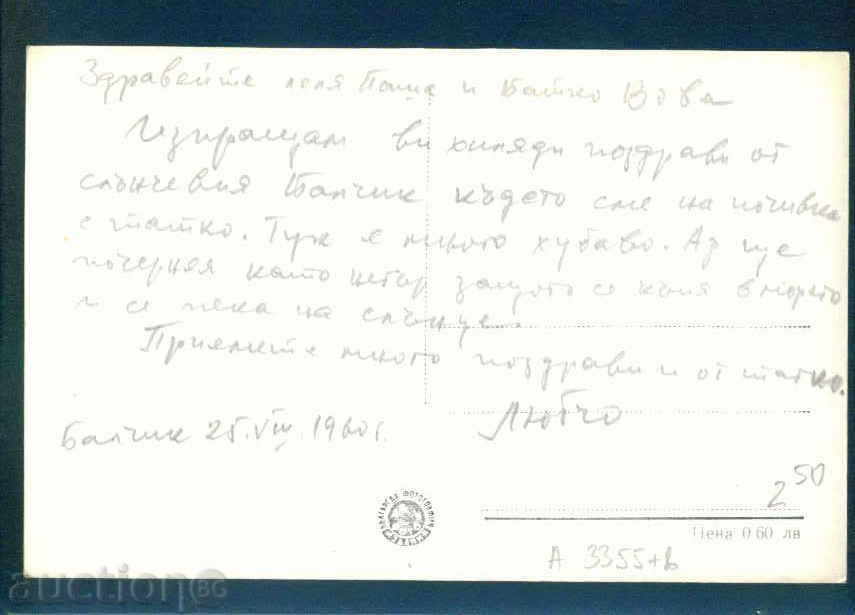 Здравейте леля Паша и Батко Вова
Изпращам ви хиляди поздрави от
слънчевия Балчик където сме на почивка
с татко. Тук е много хубаво. Аз ще
почернея като негър защото се къпя в морето
и се пека на слънце.
Приемите много поздрави и от татко.
Любчо
Балчик 25.VIII.1960 г.
2 50
Цена 0 60 лв
А 3355+в
auction.BG